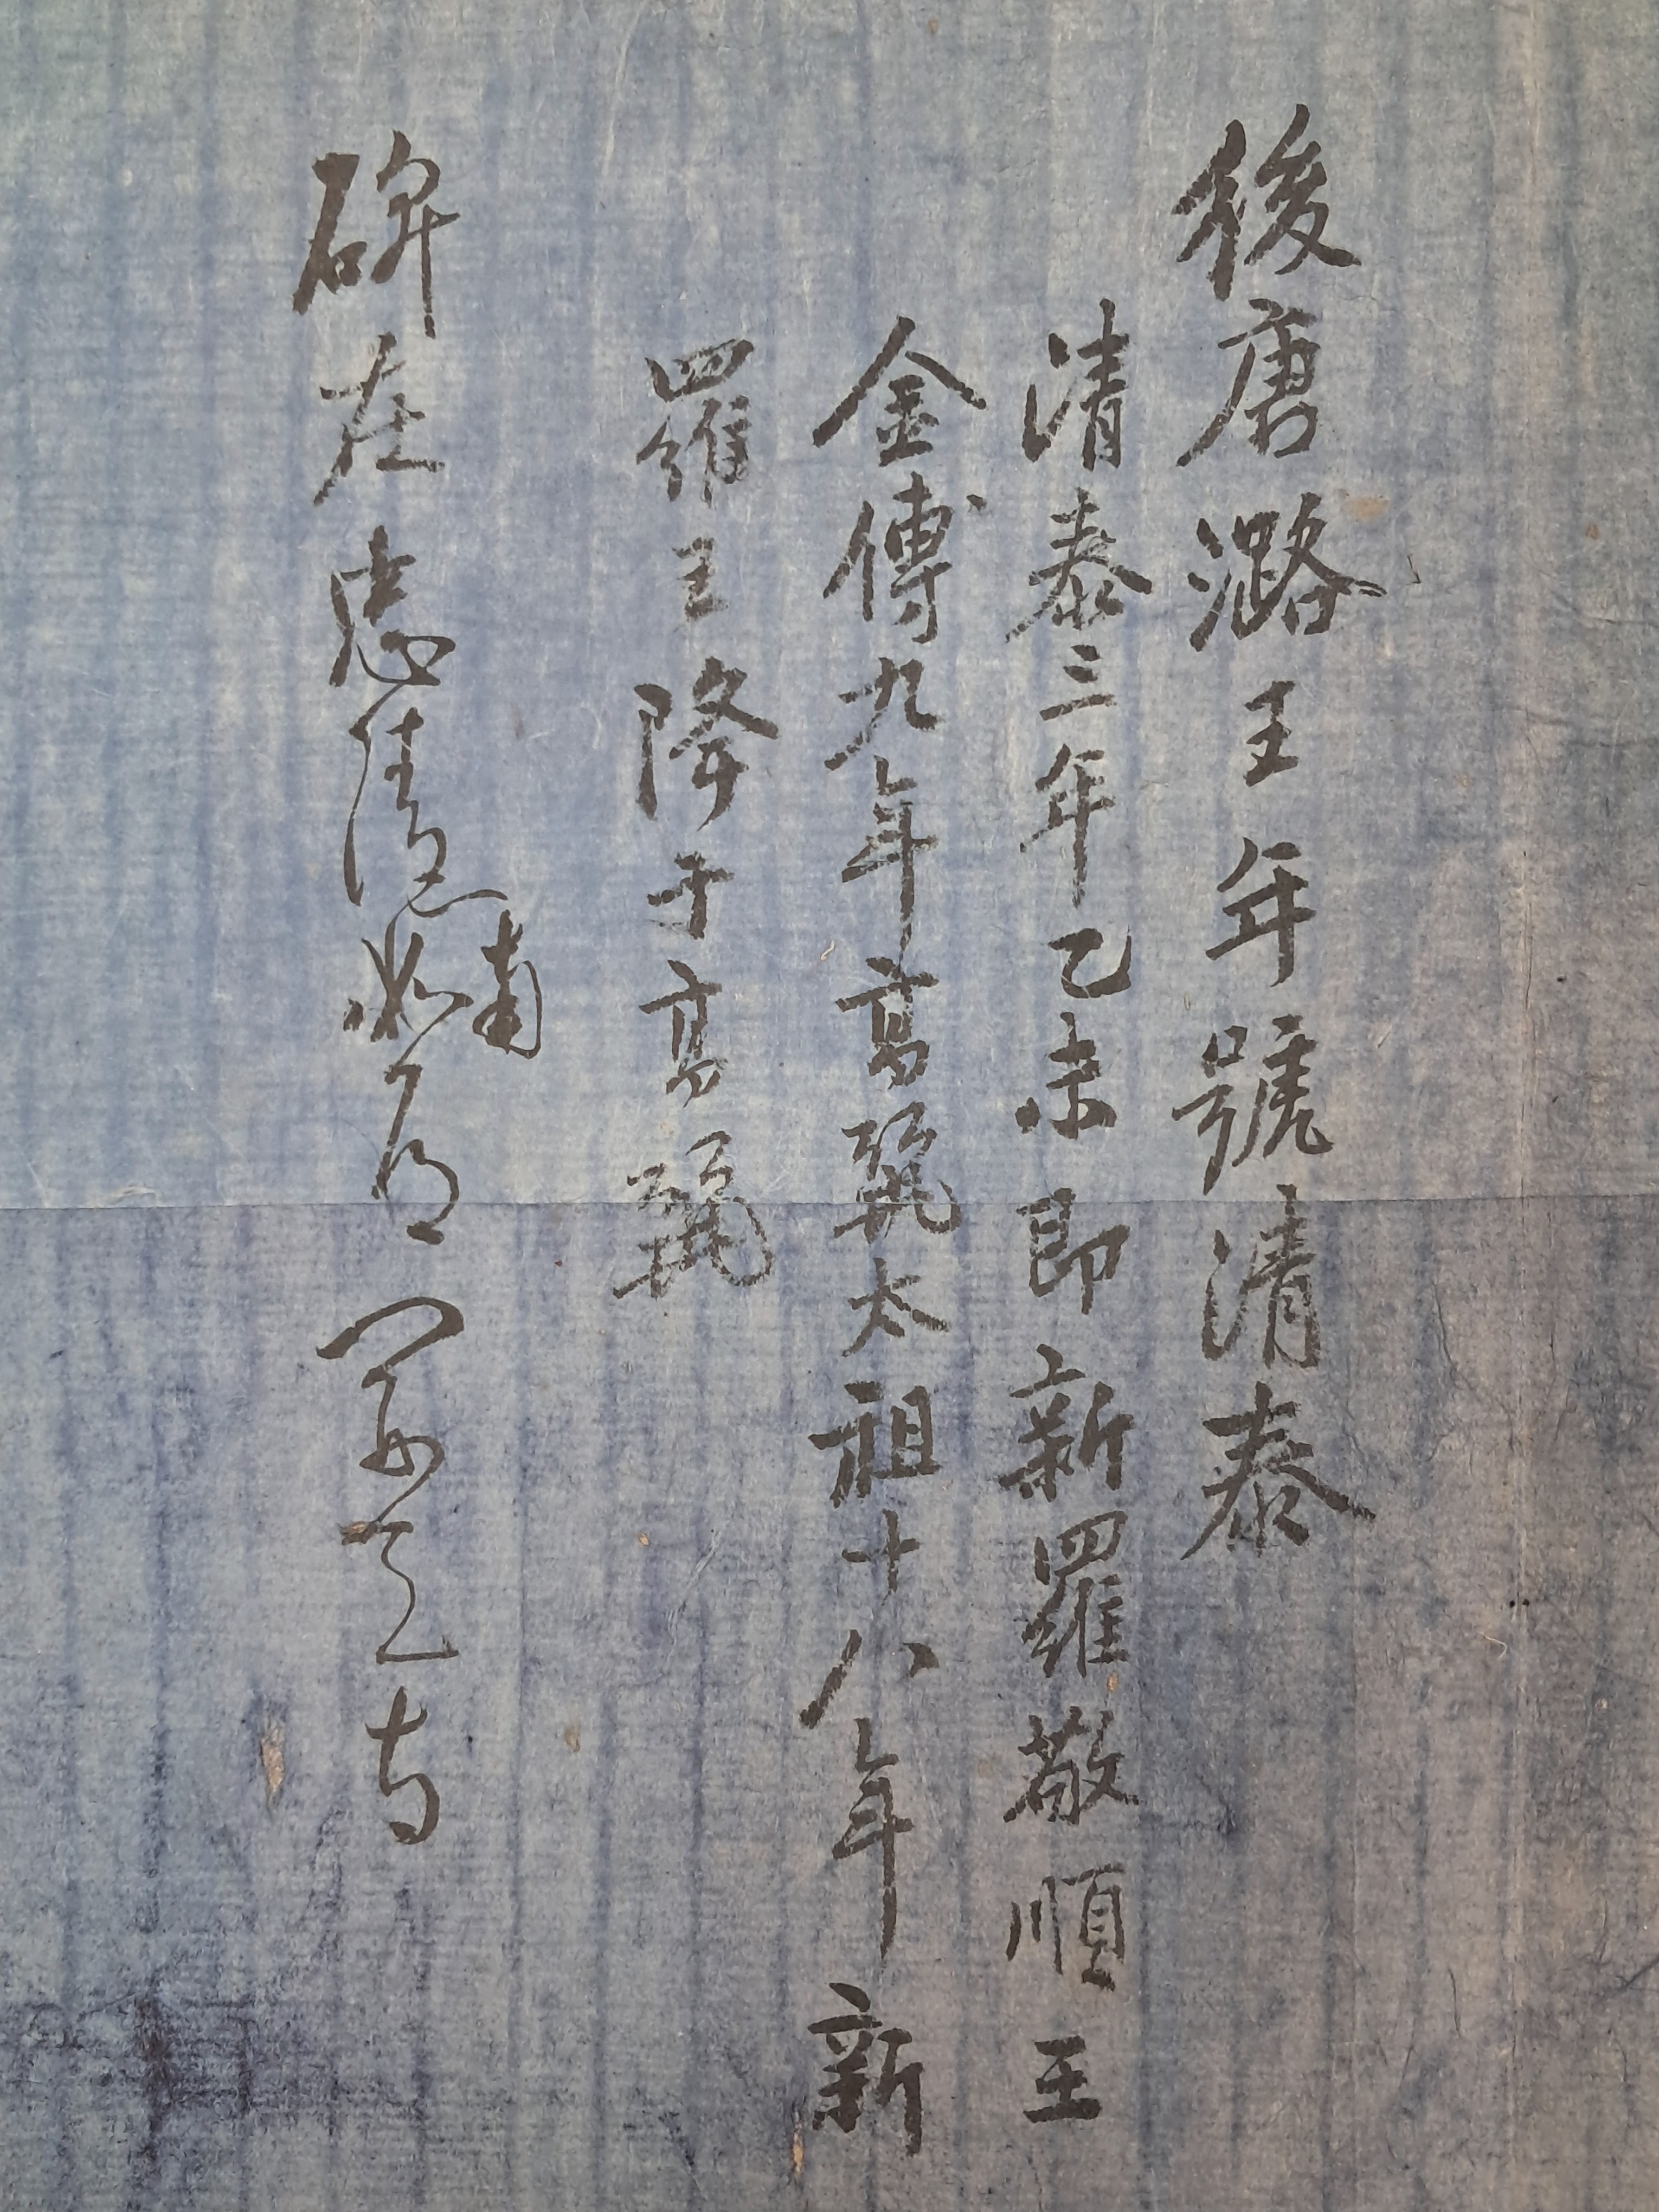 後唐潞王年號清泰
清泰三年乙未即新羅敬順王
金傅九年高麗太祖十八年新
羅王降于高麗
碑在忠清南